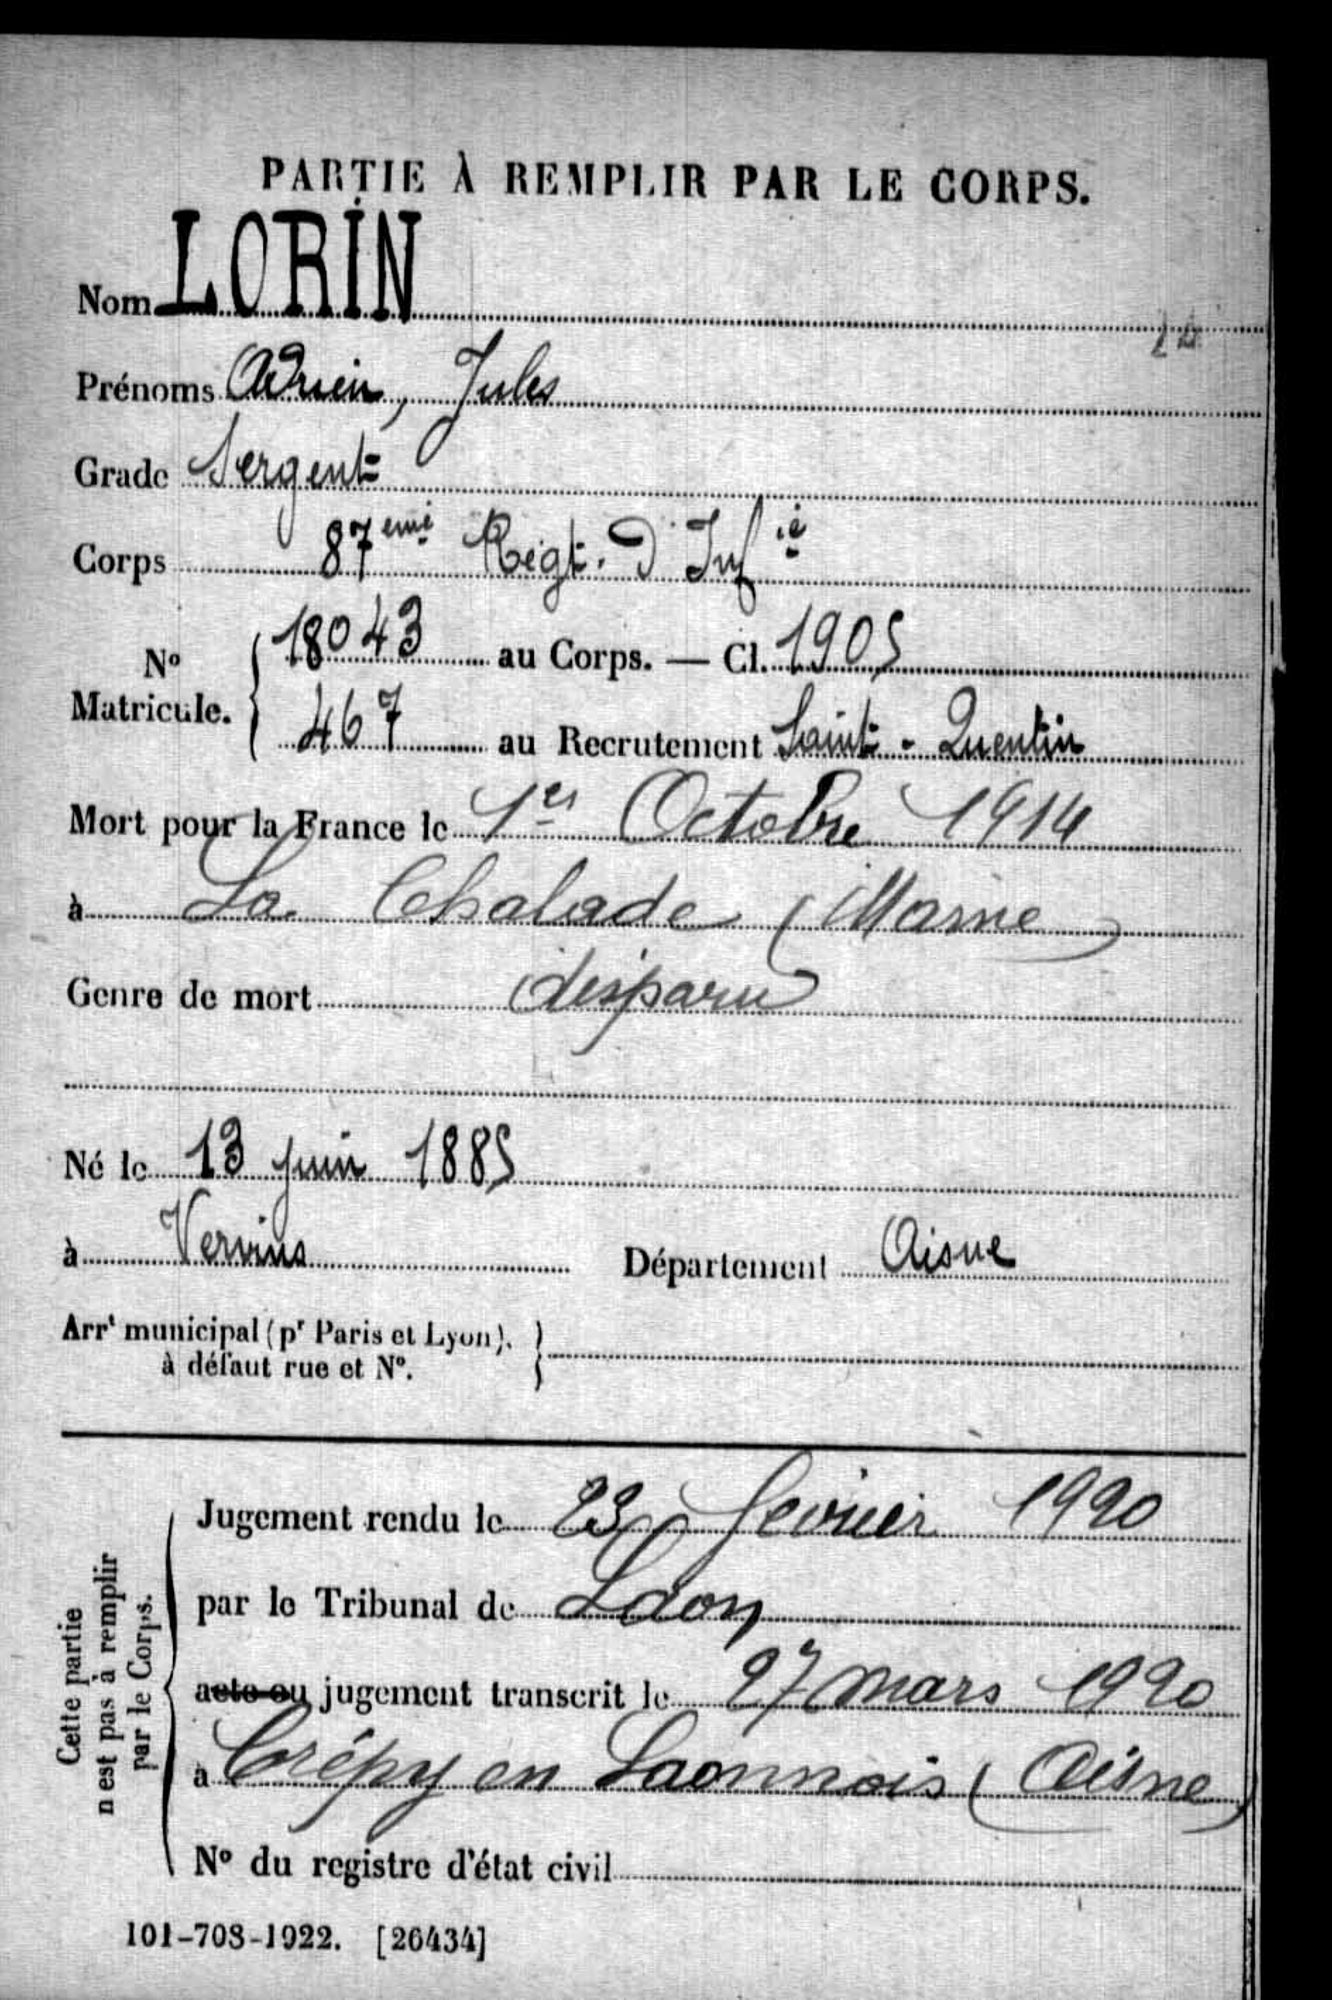 PARTIE À REMPLIR PAR LE CORPS.
Nom LORIN
Prénoms Adrien, Jules
Grade Sergent
Corps 87eme Régt. d'Infie
No Matricule. { 18043 au Corps. — Cl. 1905
467 au Recrutement Saint-Quentin
Mort pour la France le 1er Octobre 1914
à La Chalade (Marne)
Genre de mort disparu
Né le 13 juin 1885
à Vervins Département Aisne
Arrt municipal (pr Paris et Lyon), }
à défaut rue et No.
Cette partie
n'est pas à remplir
par le Corps.
Jugement rendu le 23 février 1920
par le Tribunal de Laon
acte ou jugement transcrit le 27 mars 1920
à Crépy en Laonnois (Aisne)
No du registre d'état civil
101-708-1922. [26434]